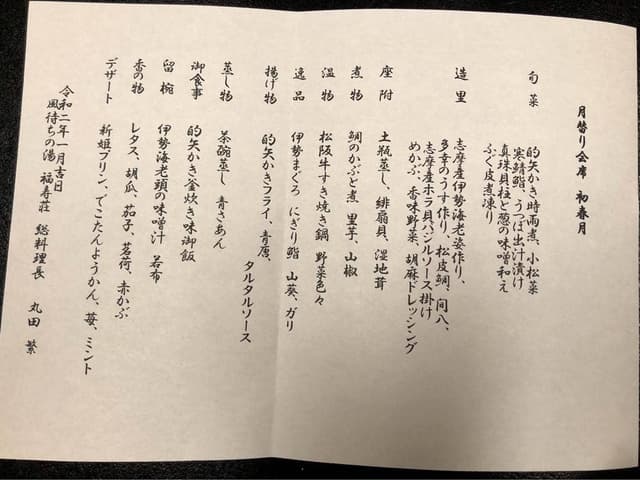 月替り会席 初春月
旬菜
的矢かき時雨煮、小松菜
寒鯖鮨、うつぼ出汁漬け
真珠貝柱と葱の味噌和え
ふぐ皮煮凍り
造里
志摩産伊勢海老姿作り、
多幸のうす作り、松皮鯛、間八、
志摩産ホラ貝バジルソース掛け
めかぶ、香味野菜、胡麻ドレッシング
座附 土瓶蒸し、緋扇貝、湿地茸
煮物 鯛のかぶと煮 里芋、山椒
温物 松阪牛すき焼き鍋 野菜色々
逸品 伊勢まぐろ にぎり鮨 山葵、ガリ
揚げ物 的矢かきフライ、青唐、
タルタルソース
蒸し物 茶碗蒸し 青さあん
御食事 的矢かき釜炊き味御飯
留椀 伊勢海老頭の味噌汁 若布
香の物 レタス、胡瓜、茄子、茗荷、赤かぶ
デザート 新姫プリン、でこたんようかん、苺、ミント
令和二年一月吉日
風待ちの湯 福寿荘 総料理長 丸田 繁